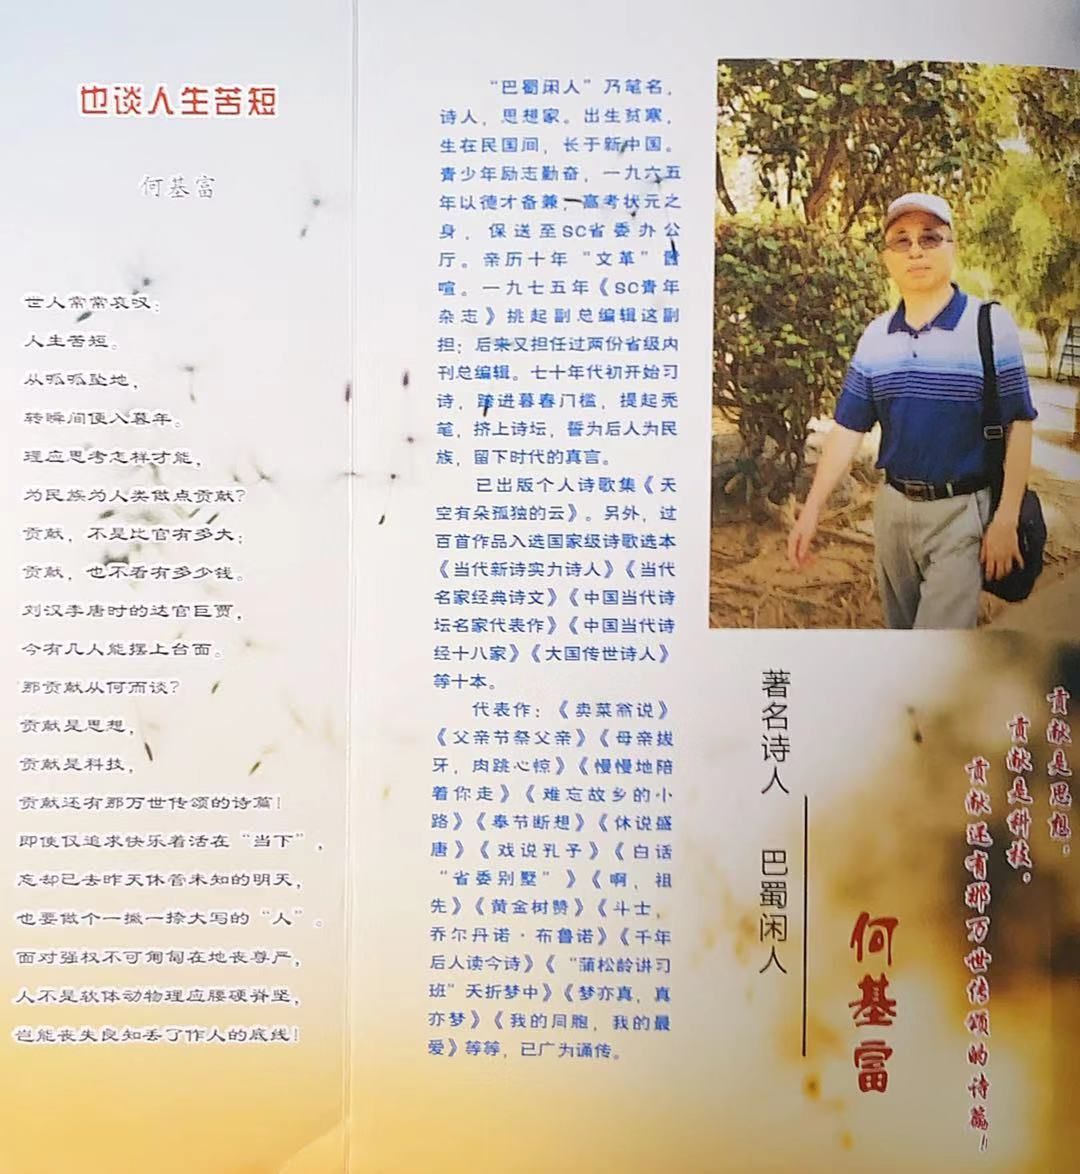 也谈人生苦短
何基富
世人常常哀叹：
人生苦短。
从呱呱坠地，
转瞬间便入暮年。
理应思考怎样才能，
为民族为人类做点贡献？
贡献，不是比官有多大；
贡献，也不看有多少钱。
刘汉李唐时的达官巨贾，
今有几人能摆上台面。
那贡献从何而谈？
贡献是思想，
贡献是科技，
贡献还有那万世传颂的诗篇！
即使仅追求快乐着活在“当下”，
忘却已去昨天休管未知的明天，
也要做个一撇一捺大写的“人”。
面对强权不可匍匐在地丧尊严，
人不是软体动物理应腰硬脊坚，
岂能丧失良知丢了作人的底线！
“巴蜀闲人”乃笔名，
诗人，思想家。出生贫寒，
生在民国间，长于新中国。
青少年励志勤奋，一九六五
年以德才备兼，高考状元之
身，保送至SC省委办公
厅。亲历十年“文革”嚣
喧。一九七五年《SC青年
杂志》挑起副总编辑这副
担；后来又担任过两份省级内
刊总编辑。七十年代初开始习
诗，跨进暮春门槛，提起秃
笔，挤上诗坛，誓为后人为民
族，留下时代的真言。
已出版个人诗歌集《天
空有朵孤独的云》。另外，过
百首作品入选国家级诗歌选本
《当代新诗实力诗人》《当代
名家经典诗文》《中国当代诗
坛名家代表作》《中国当代诗
经十八家》《大国传世诗人》
等十本。
代表作：《卖菜翁说》
《父亲节祭父亲》《母亲拔
牙，肉跳心惊》《慢慢地陪
着你走》《难忘故乡的小
路》《奉节断想》《休说盛
唐》《戏说孔子》《白话
“省委别墅”》《啊，祖
先》《黄金树赞》《斗士，
乔尔丹诺·布鲁诺》《千年
后人读今诗》《“蒲松龄讲习
班”夭折梦中》《梦亦真，真
亦梦》《我的同胞，我的最
爱》等等，已广为诵传。
贡献是思想，
贡献是科技，
贡献还有那万世传颂的诗篇！
著名诗人 巴蜀闲人
何基富